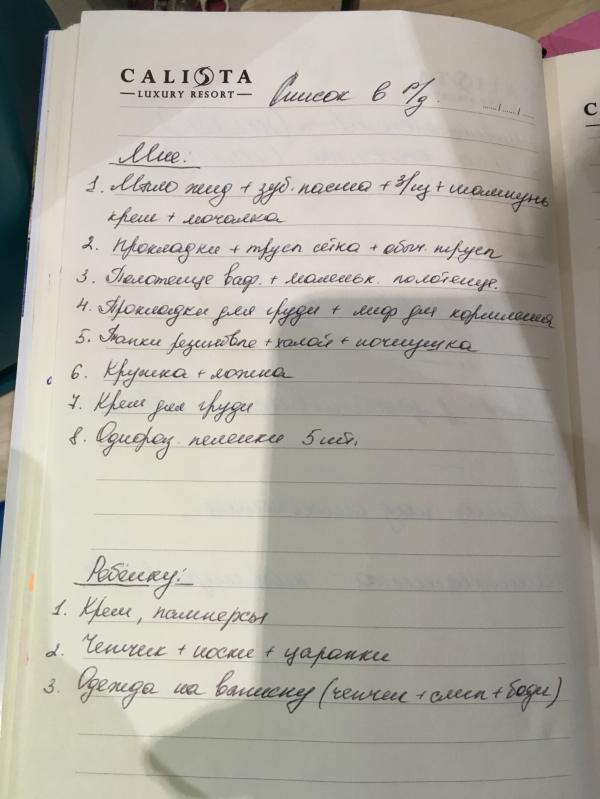 CALISTA
LUXURY RESORT
Список в р/д. ....../....../......
Мне:
1. Мыло жид + зуб. паста + з/щ + шампунь
крем + мочалка
2. Прокладки + трусы сетка + обыч. трусы
3. Полотенце ваф. + маленьк. полотенце.
4. Прокладки для груди + лиф для кормления
5. Тапки резиновые + халат + ночнушка
6. Кружка + ложка
7. Крем для груди
8. Однораз. пеленки 5 шт.
Ребёнку:
1. Крем, памперсы
2. Чепчик + носки + царапки
3. Одежда на выписку (чепчик + слип + боди)